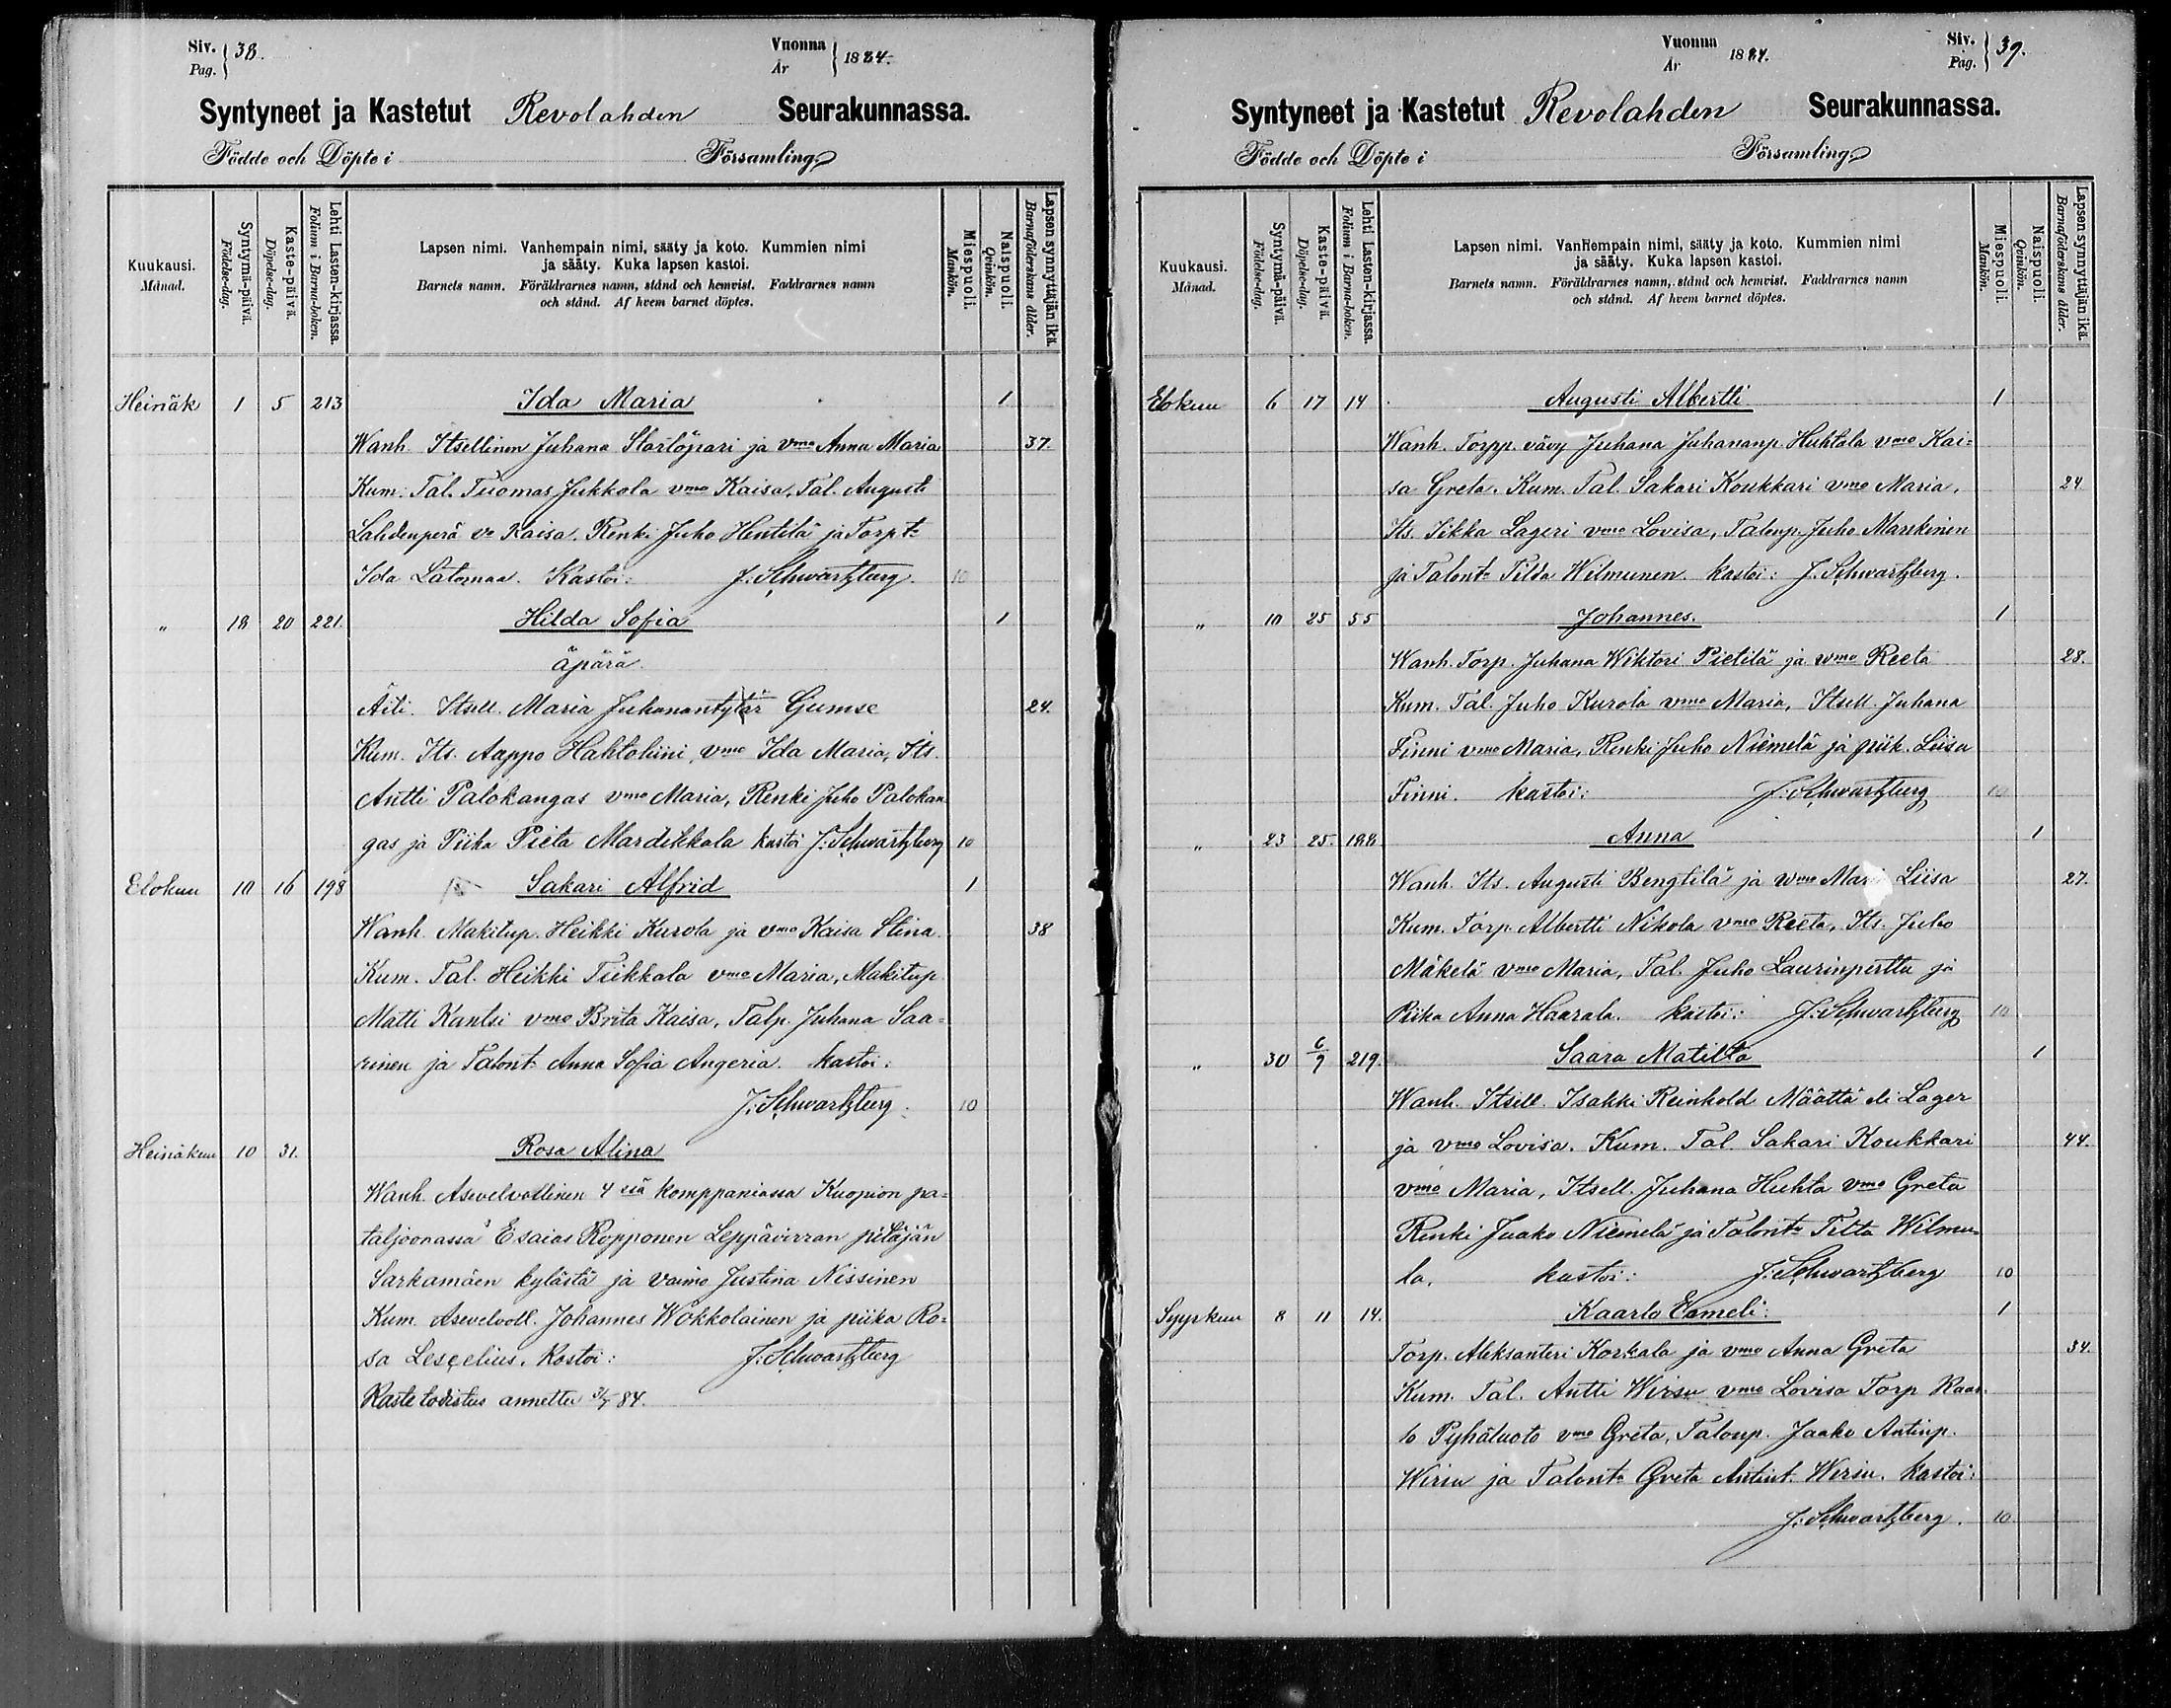 Siv. Pag. } 38.
Vuonna År } 1884.
Syntyneet ja Kastetut Revolahden Seurakunnassa.
Födde och Döpte i Församling.
Kuukausi. Månad.
Syntymä-päivä. Födelse-dag.
Kaste-päivä. Döpelse-dag.
Lehti Lasten-kirjassa. Folium i Barna-boken.
Lapsen nimi. Vanhempain nimi, sääty ja koto. Kummien nimi
ja sääty. Kuka lapsen kastoi.
Barnets namn. Föräldrarnes namn, stånd och hemvist. Faddrarnes namn
och stånd. Af hvem barnet döptes.
Miespuoli. Mankön.
Naispuoli. Qvinkön.
Lapsen synnyttäjän ikä. Barnaföderskans ålder.
Heinäk 1 5 213 Ida Maria 1
Wanh. Itsellinen Juhana Starlöjvari ja vmo Anna Maria 37.
Kum. Tal. Tuomas Jukkola vmo Kaisa, Tal. Augusti
Lahdenperä vo Kaisa. Renki Juho Hentilä ja Torpt:
Ida Latomaa. Kastoi: J. Schwartzberg. 10
" 18 20 221. Hilda Sofia 1
äpärä.
Äiti. Itsell. Maria Juhanantytär Gumse 24.
Kum. Its. Aappo Hahtohiini, vmo Ida Maria, Its.
Antti Palokangas vmo Maria, Renki Juho Palokan
gas ja Piika Pieta Mardikkala kastoi J. Schwartzberg 10
Elokuu 10 16 198 Sakari Alfrid 1
Wanh. Makitup. Heikki Kurola ja vmo Kaisa Stina. 38
Kum. Tal. Heikki Tiikkala vmo Maria, Makitup
Matti Kantsi vmo Brita Kaisa, Talp. Juhana Saa=
rinen ja Talont. Anna Sofia Angeria. kastoi:
J. Schwartzberg. 10
Heinäkuu 10 31. Rosa Alina
Wanh. Asevelvollinen 4 ssä komppaniassa Kuopion pa=
taljoonassa Esaias Ropponen Leppävirran pitäjän
Sarkamäen kylästä ja vaimo Justina Nissinen
Kum. Asevelvoll. Johannes Wokkolainen ja piika Ro=
sa Lescelius. Kastoi: J. Schwartzberg
Kaste todistus annettu 31/7 84.
Vuonna År 1884.
Siv. Pag. } 39.
Syntyneet ja Kastetut Revolahden Seurakunnassa.
Födde och Döpte i Församling.
Kuukausi. Månad.
Syntymä-päivä. Födelse-dag.
Kaste-päivä. Döpelse-dag.
Lehti Lasten-kirjassa. Folium i Barna-boken.
Lapsen nimi. Vanhempain nimi, sääty ja koto. Kummien nimi
ja sääty. Kuka lapsen kastoi.
Barnets namn. Föräldrarnes namn, stånd och hemvist. Faddrarnes namn
och stånd. Af hvem barnet döptes.
Miespuoli. Mankön.
Naispuoli. Qvinkön.
Lapsen synnyttäjän ikä. Barnaföderskans ålder.
Elokuu 6 17 14 Augusti Albertti 1
Wanh. Torpp. vävy Juhana Juhananp. Huhtala vmo Kai=
sa Greta. Kum. Tal. Sakari Koukkari vmo Maria, 24
Its. Iikka Lageri vmo Lovisa, Talonp. Juho Mankinen
ja Talont: Tilda Wilmunen. kastoi: J. Schwartzberg.
" 10 25 55 Johannes. 1
Wanh. Torp. Juhana Wiktori Pietilä ja vmo Reeta 28.
Kum. Tal. Juho Kurola vmo Maria, Itsell. Juhana
Finni vmo Maria, Renki Juho Niemelä ja piik. Liisa
Finni. kastoi: J. Schwartzberg 10
" 23 25. 188 Anna 1
Wanh. Its. Augusti Bengtilä ja vmo Maria Liisa 27.
Kum. Torp. Albertti Nikola vmo Reeta, Its. Juho
Mäkelä vmo Maria, Tal. Juho Laurinperttu ja
Piika Anna Haarala. kastoi: J. Schwartzberg 10
" 30 6/9 219. Saara Matilta 1
Wanh. Itsell. Isakki Reinhold Määttä eli Lager
ja vmo Lovisa. Kum. Tal. Sakari Koukkari 44.
vmo Maria, Itsell. Juhana Huhta vmo Greta
Renki Jaako Niemelä ja Talont: Tilta Wilmu=
la. kastoi: J. Schwartzberg 10
Syyskuu 8 11 14. Kaarlo Eemeli. 1
Torp. Aleksanteri Korkala ja vmo Anna Greta 34.
Kum. Tal. Antti Wirsu vmo Lovisa Torp Kaar
lo Pyhäluoto vmo Greta, Talonp. Jaako Antinp.
Wirsu ja Talont: Greta Antint. Wirsu. kastoi:
J. Schwartzberg. 10